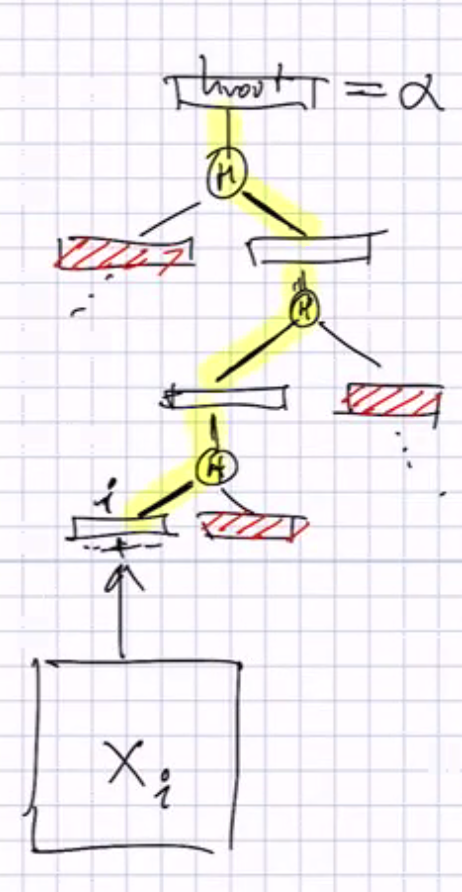 root = α
H
H
H
i
X_i